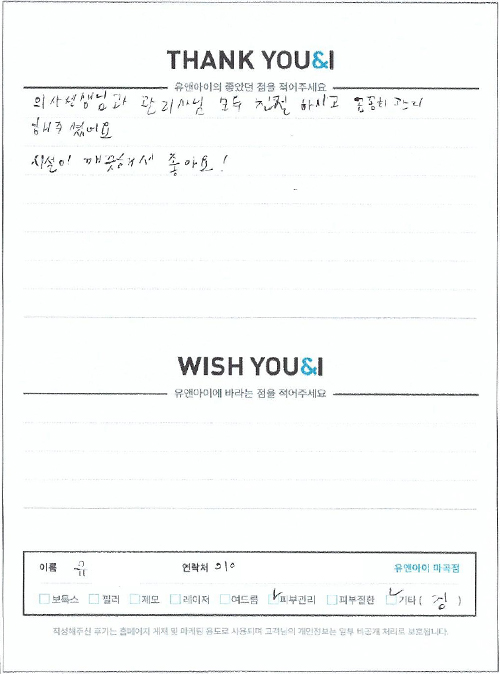 THANK YOU&I
유앤아이의 좋았던 점을 적어주세요
의사선생님과 관리사님 모두 친절 하시고 꼼꼼히 관리
해주셨어요
시설이 깨끗해서 좋아요!
WISH YOU&I
유앤아이에 바라는 점을 적어주세요
이름 유 연락처 010 유앤아이 마곡점
보톡스 필러 제모 레이저 여드름 피부관리 피부질환 기타 ( )
작성해주신 후기는 홈페이지 게재 및 마케팅 용도로 사용되며 고객님의 개인정보는 일부 비공개 처리로 보호됩니다.